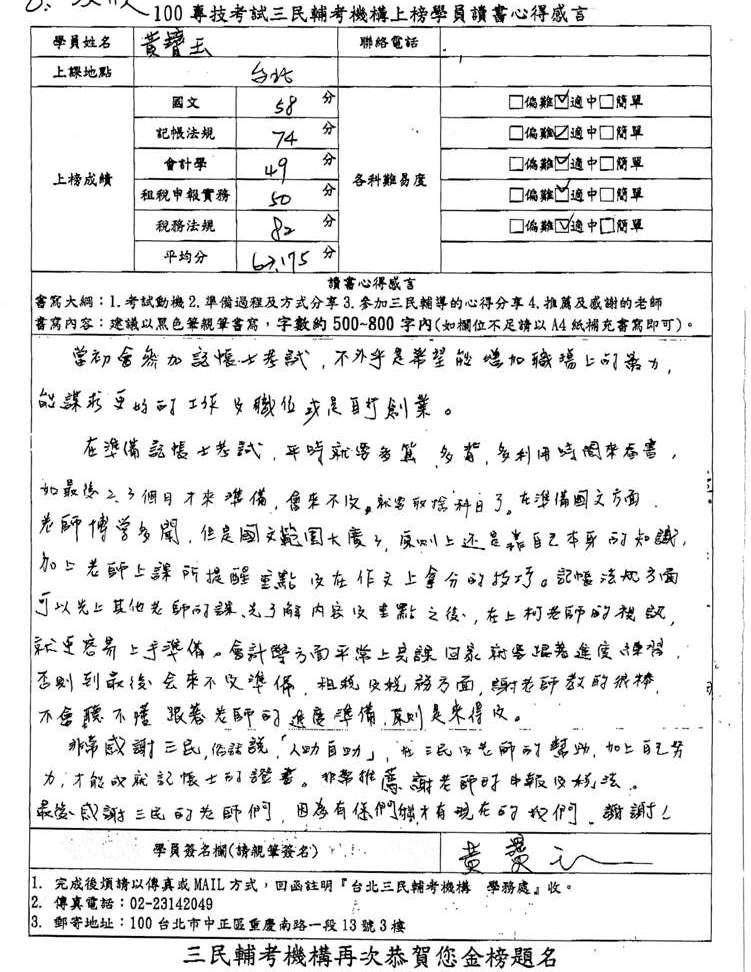 100 專技考試三民輔考機構上榜學員讀書心得感言
學員姓名 黃寶玉 聯絡電話
上課地點 台北
上榜成績 各科難易度
國文 58 分 □偏難☑適中□簡單
記帳法規 74 分 □偏難☑適中□簡單
會計學 49 分 □偏難☑適中□簡單
租稅申報實務 50 分 □偏難☑適中□簡單
稅務法規 82 分 □偏難☑適中□簡單
平均分 62.175 分
讀書心得感言
書寫大綱：1.考試動機 2.準備過程及方式分享 3.參加三民輔導的心得分享 4.推薦及感謝的老師
書寫內容：建議以黑色筆親筆書寫，字數約 500~800 字內(如欄位不足請以 A4 紙補充書寫即可)。
當初會參加記帳士考試，不外乎是希望能增加職場上的勢力，
能謀求更好的工作及職位或是自行創業。
在準備記帳士考試，平時就要多寫，多背，多利用時間來看書，
如最後2、3個月才來準備，會來不及。就要取捨科目了。在準備國文方面，
老師博學多聞，但是國文範圍太廣了，原則上還是靠自己本身的知識，
加上老師上課所提醒重點及在作文上拿分的技巧。記帳法規方面
可以先上其他老師的課，先了解內容及重點之後，在上柯老師的視訊，
就更容易上手準備。會計學方面平常上完課回家就要跟著進度練習，
否則到最後會來不及準備，租稅及稅務方面，謝老師教的很棒，
不會聽不懂跟著老師的進度準備，原則是來得及。
非常感謝三民，俗話說，「人助自助」，在三民及老師的幫助，加上自己努
力，才能成就記帳士的證書。非常推薦謝老師的申報及稅法。
最後感謝三民的老師們，因為有你們才有現在的我們，謝謝！
學員簽名欄(請親筆簽名) 黃寶玉
1. 完成後煩請以傳真或MAIL方式，回函註明『台北三民輔考機構 學務處』收。
2. 傳真電話：02-23142049
3. 郵寄地址：100 台北市中正區重慶南路一段 13 號 3 樓
三民輔考機構再次恭賀您金榜題名